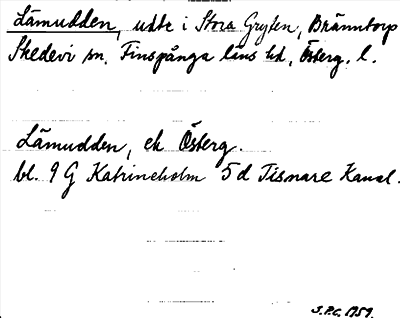 Lämudden, udde i Stora Gryten, Bränntorp
Skedevi sn. Finspånga läns hd, Österg. l.
Lämudden, ek Österg.
bl. 9 G Katrineholm 5 d Tisnare Kanal.
S.P.C. 1959.